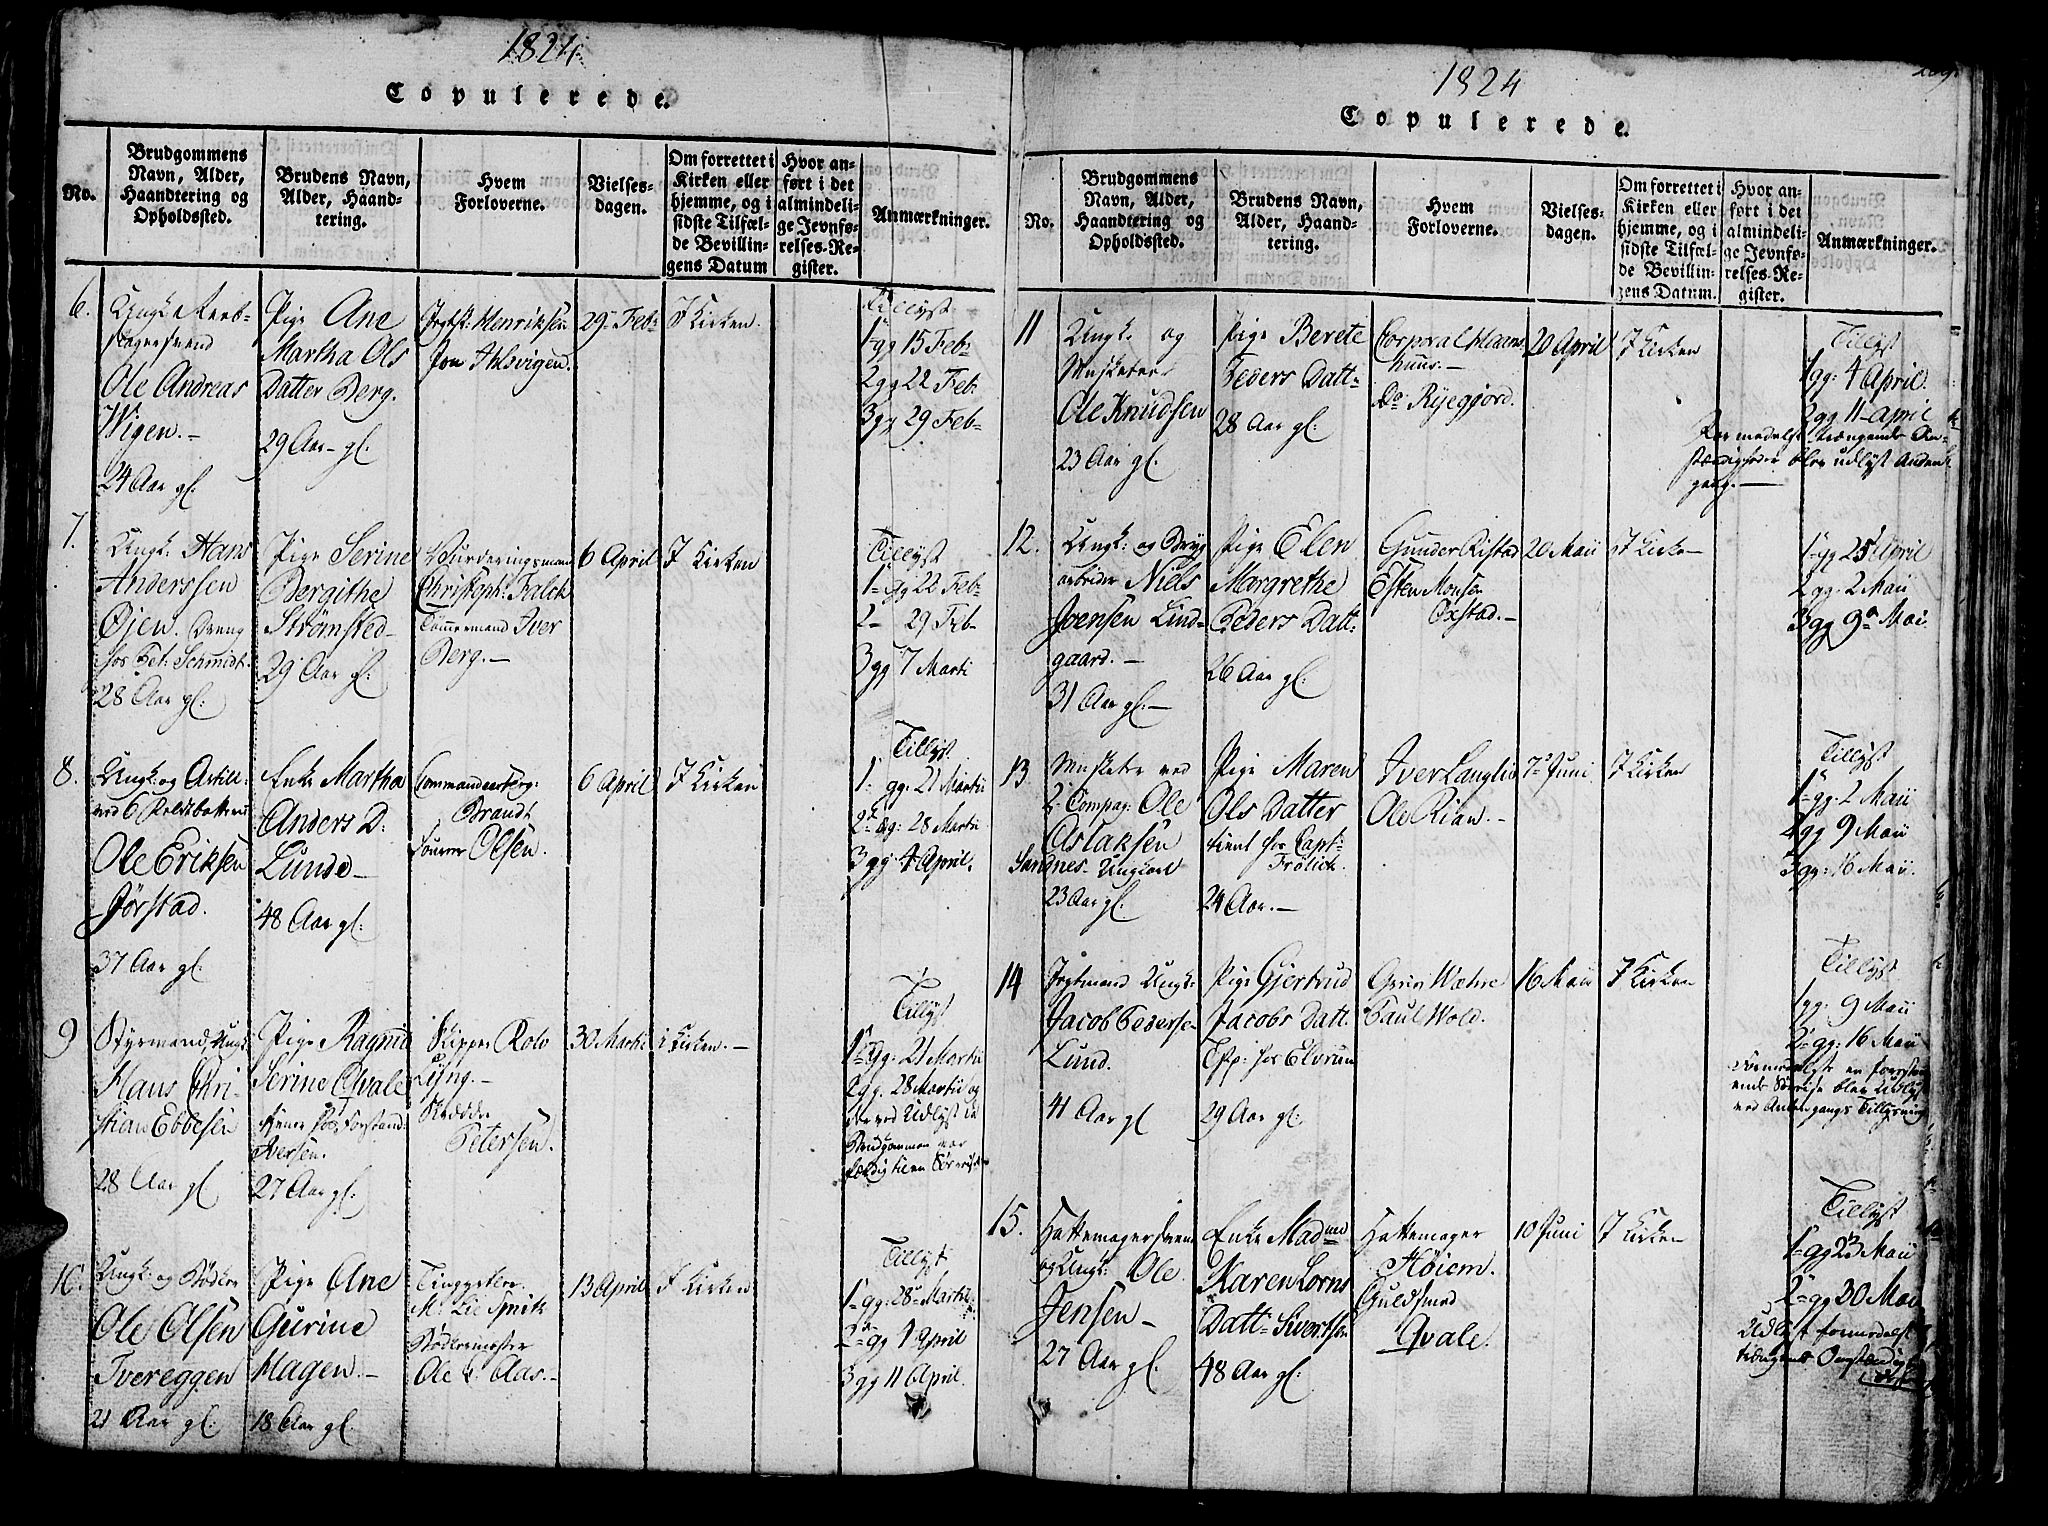 1824
Copulerede.
No.
Brudgommens
Navn, Alder,
Haandtering og
Opholdssted.
Brudens Navn,
Alder, Haand-
tering.
Hvem
Forloverne.
Vielses-
dagen.
Om forrettet i
Kirken eller
hjemme, og i
sidste Tilfæl-
de Bevillin-
gens Datum
Hvor an-
ført i det
almindeli-
ge Jevnfø-
relses-Re-
gister.
Anmærkninger.
6.
Ungk.
Ole Andreas
Wigen.-
24 Aar gl.
Pige Ane
Martha Ols
Datter Berg.
29 Aar- gl.
Henriksen
Jon
29 Feb:
I Kirken.
Tillyst
1 gg 15 Feb-
2 gg 22 Feb:
3 gg 29 Feb-
7.
Ungk: Hans
Anderssen
Øjen. Dreng
hos Schmidt.
28 Aar gl:
Pige Serine
Bergithe
Strømsted-
29 Aar gl:
Vurderingsmand
Christoph: Falck
Tømmermand Iver
Berg.-
6 April
I Kirken
Tillyst
1- gg 22 Feb-
2- 29 Feb-
3 gg 7 Marti
8.
Ungk: og Artill-
ved 6
Ole Eriksen
Jørstad.
37 Aar gl.
Enke Martha
Anders D:
Lunde-
48 Aar gl:
Brandt
Olsen.
6 April
I Kirken
Tillyst
1- gg: 21 Martii
2 gg: 28 Martii
3 gg 4 April.
9
Styrmand, Ungk:
Hans Chri-
stian Ebbesen
28 Aar gl
Pige Ragnil
Serine Qvale
Iversen.
27 Aar gl:
Skipper Rolv
Lyng.-
Petersen.
30 Marti
i Kirken.-
Tillyst
1 gg: 21 Martii
2 gg. 28 Martii og
derved Udlyst da
Brudgommen var
færdig til en
10.
Ungk: og Bødker
Ole Olsen
Tvereggen
21 Aar gl:
Pige Ane
Gurine
Hagen.-
18 Aar gl.
Bødkermester
Ole Aas-
13 April
I Kirken
Tillyst
1- gg: 28 Martii
2- gg 1 April
3 gg 11 April.
1824
Copulerede.
No.
Brudgommens
Navn, Alder,
Haandtering og
Opholdssted.
Brudens Navn,
Alder, Haand-
tering.
Hvem
Forloverne.
Vielses-
dagen.
Om forrettet i
Kirken eller
hjemme, og i
sidste Tilfæl-
de Bevillin-
gens Datum.
Hvor an-
ført i det
almindeli-
ge Jevnfø-
relses-Re-
gister.
Anmærkninger.
11
Ungk. og
Musketer
Ole Knudsen
23 Aar gl.
Pige Berete
Peders Datt-
28 Aar gl.
Corporal
Do
20 April
I Kirken
Tillyst
1 gg: 4 April.
2 gg 11- april
blev udlyst Anden
gang.-
12.
Ungk: og Bryg
arbeider Niels
Joensen Lind-
gaard.-
31 Aar gl.-
Pige Elen
Margrethe
Peders Datt:
26 Aar gl:
Gunder Ristad
Esten Monsen
20 Maii
I Kirke-
1- gg 25 April
2 gg. 2 Maii
3 gg 9 Mai
13
Musketer ved
2 Compag: Ole
Aslaksen
Sandnes- Ungkarl
23 Aar gl.
Pige Maren
Ols Datter
tient hos Capt-
Frölich.
24 Aar.-
Iver Langlie
Ole Rian.-
7 Juni
I Kirken
Tillyst
1- gg: 2 Maii
2 gg 9 Maii
3 gg: 16 Maii.
14
Ungk:
Jacob Pederse-
Lund.
41 Aar gl
Pige Gjertrud
Jacobs Datt.
hos Elvrum
29 Aar gl:
Paul Wold.
16 Maii
I Kirken
Tillyst
1 gg: 9 Maii
2- gg: 16 Maii
ved Andengangs Tillysning
15.
Hattemagersvend
og Ungk: Ole
Jensen-
27 Aar gl.
Enke Madme
Karen Lorns
Datt- Sivertsen
48 Aar gl:
Hattemager
Høiem.
Guldsmed
Qvale.
10 Juni
I Kirken
Tillyst
1- gg 23 Maii
2- gg 30 Mai
Udlyst formedelst